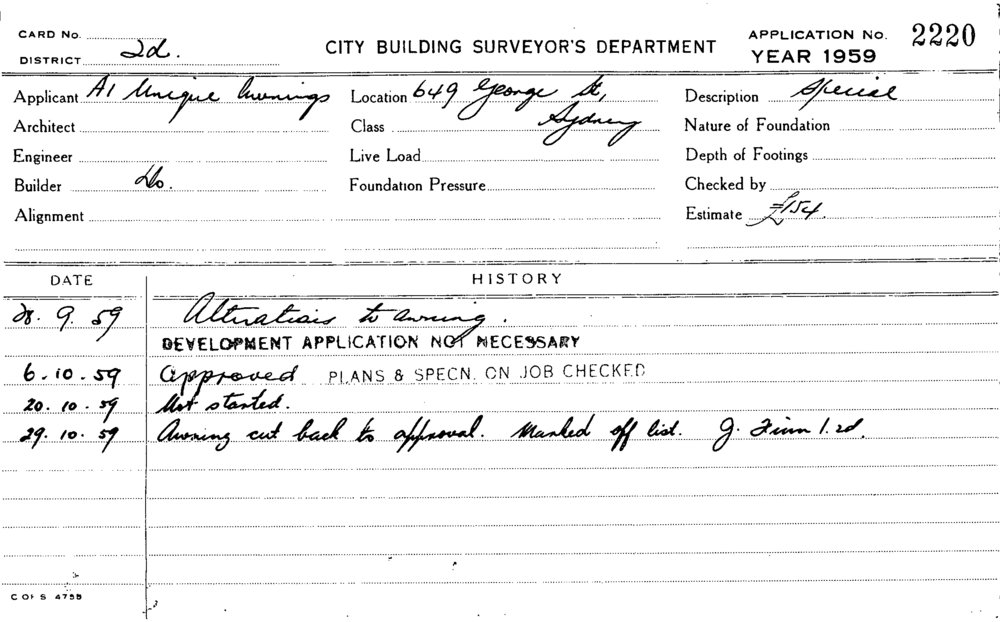 CARD No.
DISTRICT 2d.
CITY BUILDING SURVEYOR'S DEPARTMENT
APPLICATION No. 2220
YEAR 1959
Applicant A1 Unique Awnings Location 649 George St, Description Special
Architect Class Sydney Nature of Foundation
Engineer Live Load Depth of Footings
Builder Do. Foundation Pressure Checked by
Alignment Estimate £154.
DATE HISTORY
28. 9. 59 Alterations to awning.
DEVELOPMENT APPLICATION NOT NECESSARY
6. 10. 59 Approved PLANS & SPECN. ON JOB CHECKED
20. 10. 59 Not started.
29. 10. 59 Awning cut back to approval. Marked off list. J.
C OF S 4755